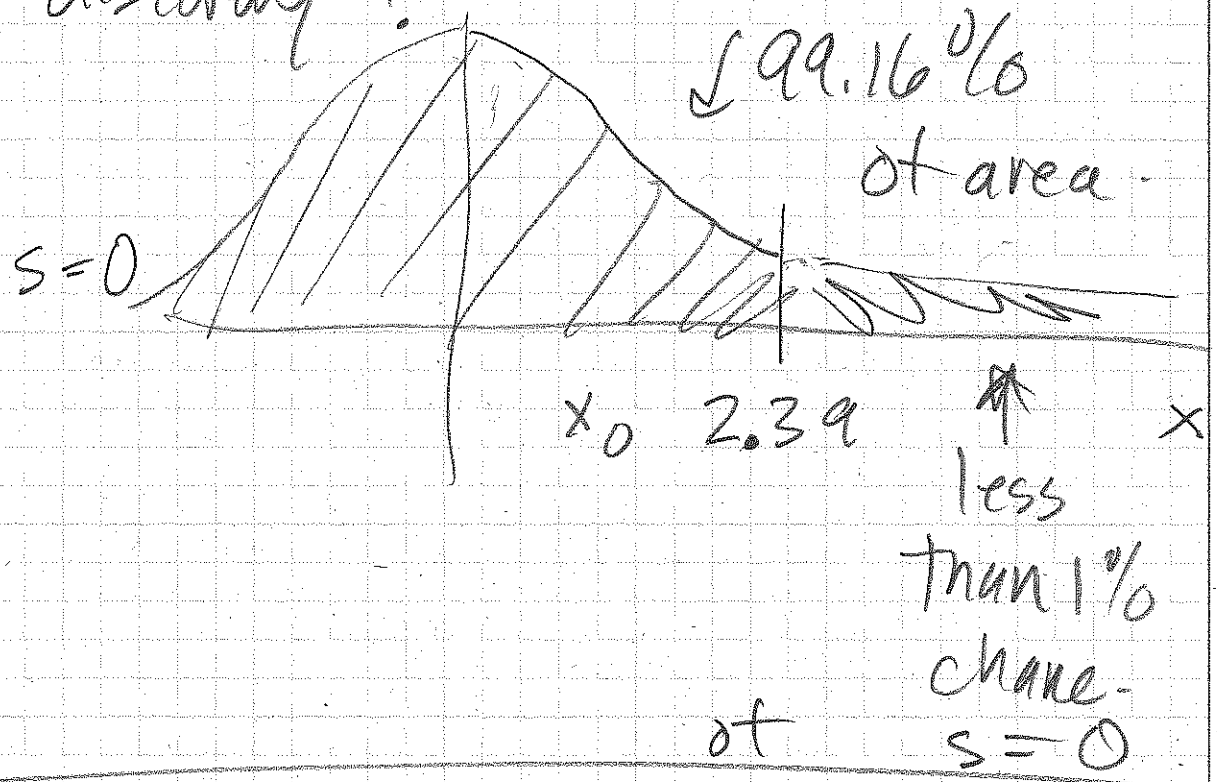 ?
99.16%
of area.
s=0
x₀ 2.39 x
less
than 1%
chane.
of s=0